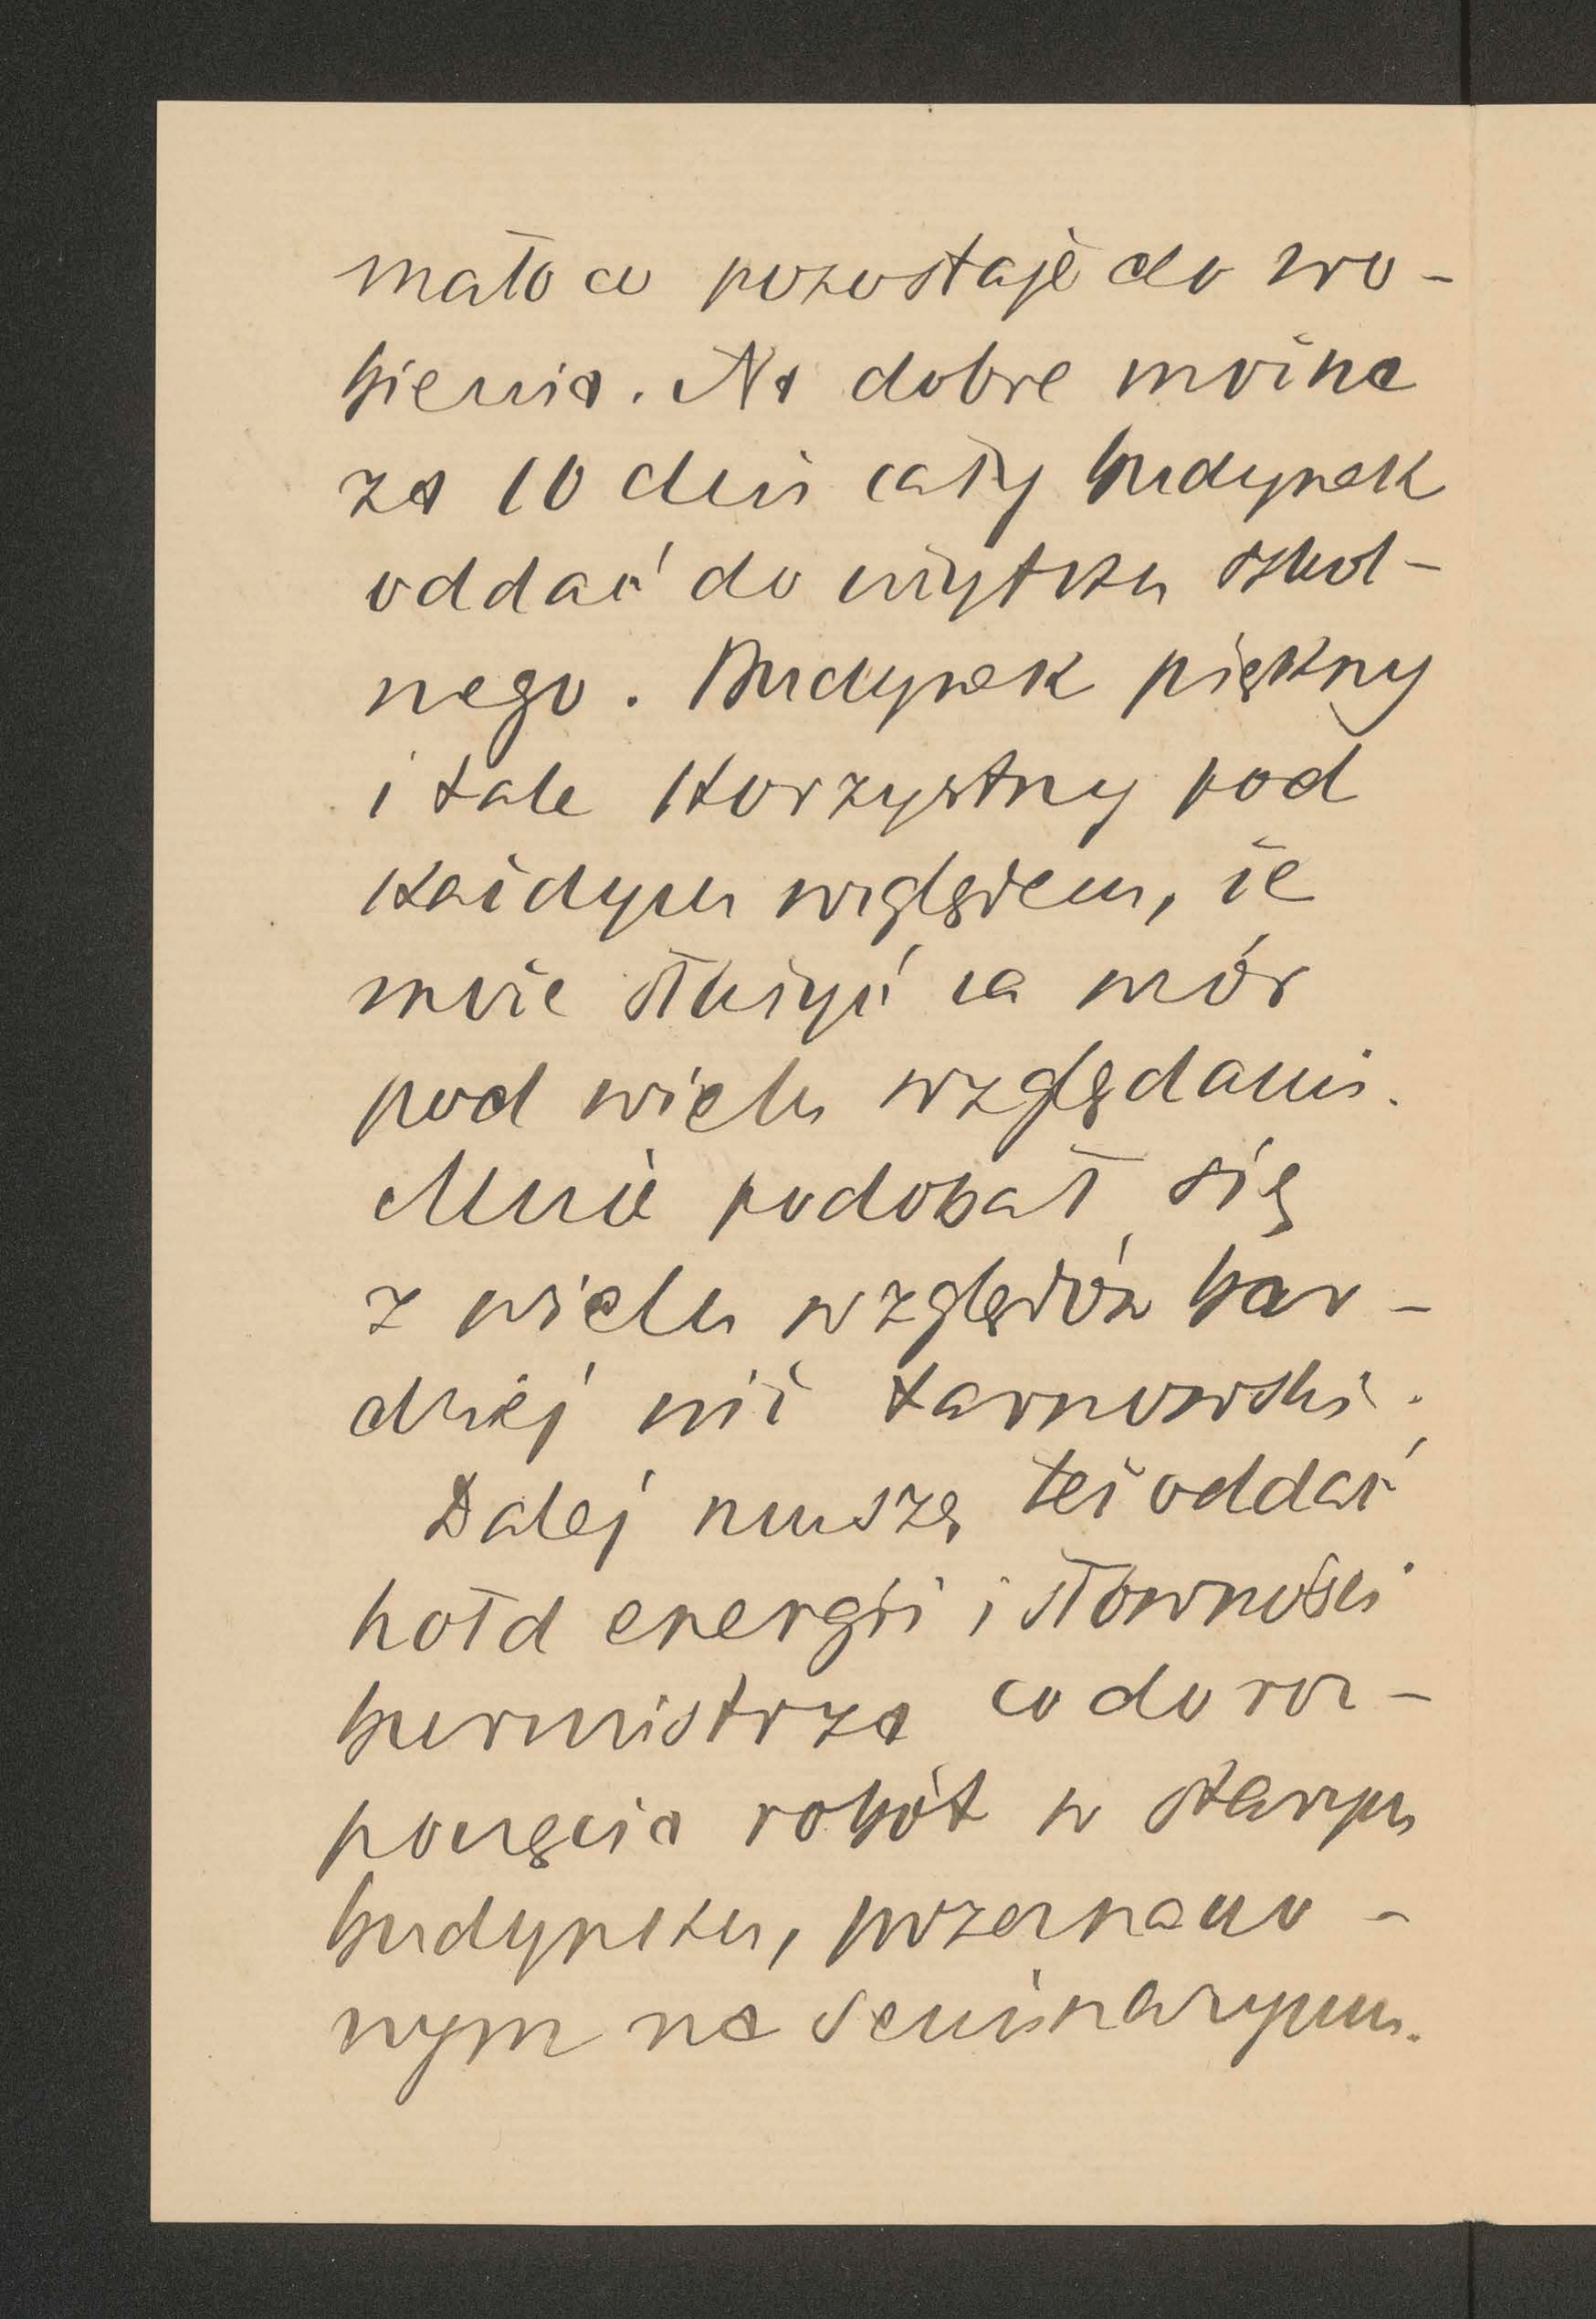 mało co pozostaje do zro-
bienia. Na dobre można
za 10 dni cały budynek
oddać do użytku szkol-
nego. Budynek piękny
i tak korzystny pod
każdym względem, że
może służyć za wzór
pod wielu względami.
Mnie podobał się
z wielu względów bar-
dziej niż tarnowski.
Dalej muszę też oddać
hołd energii i słowności
burmistrza co do roz-
poczęcia robót w starym
budynku, przeznaczo-
nym na Seminaryum.